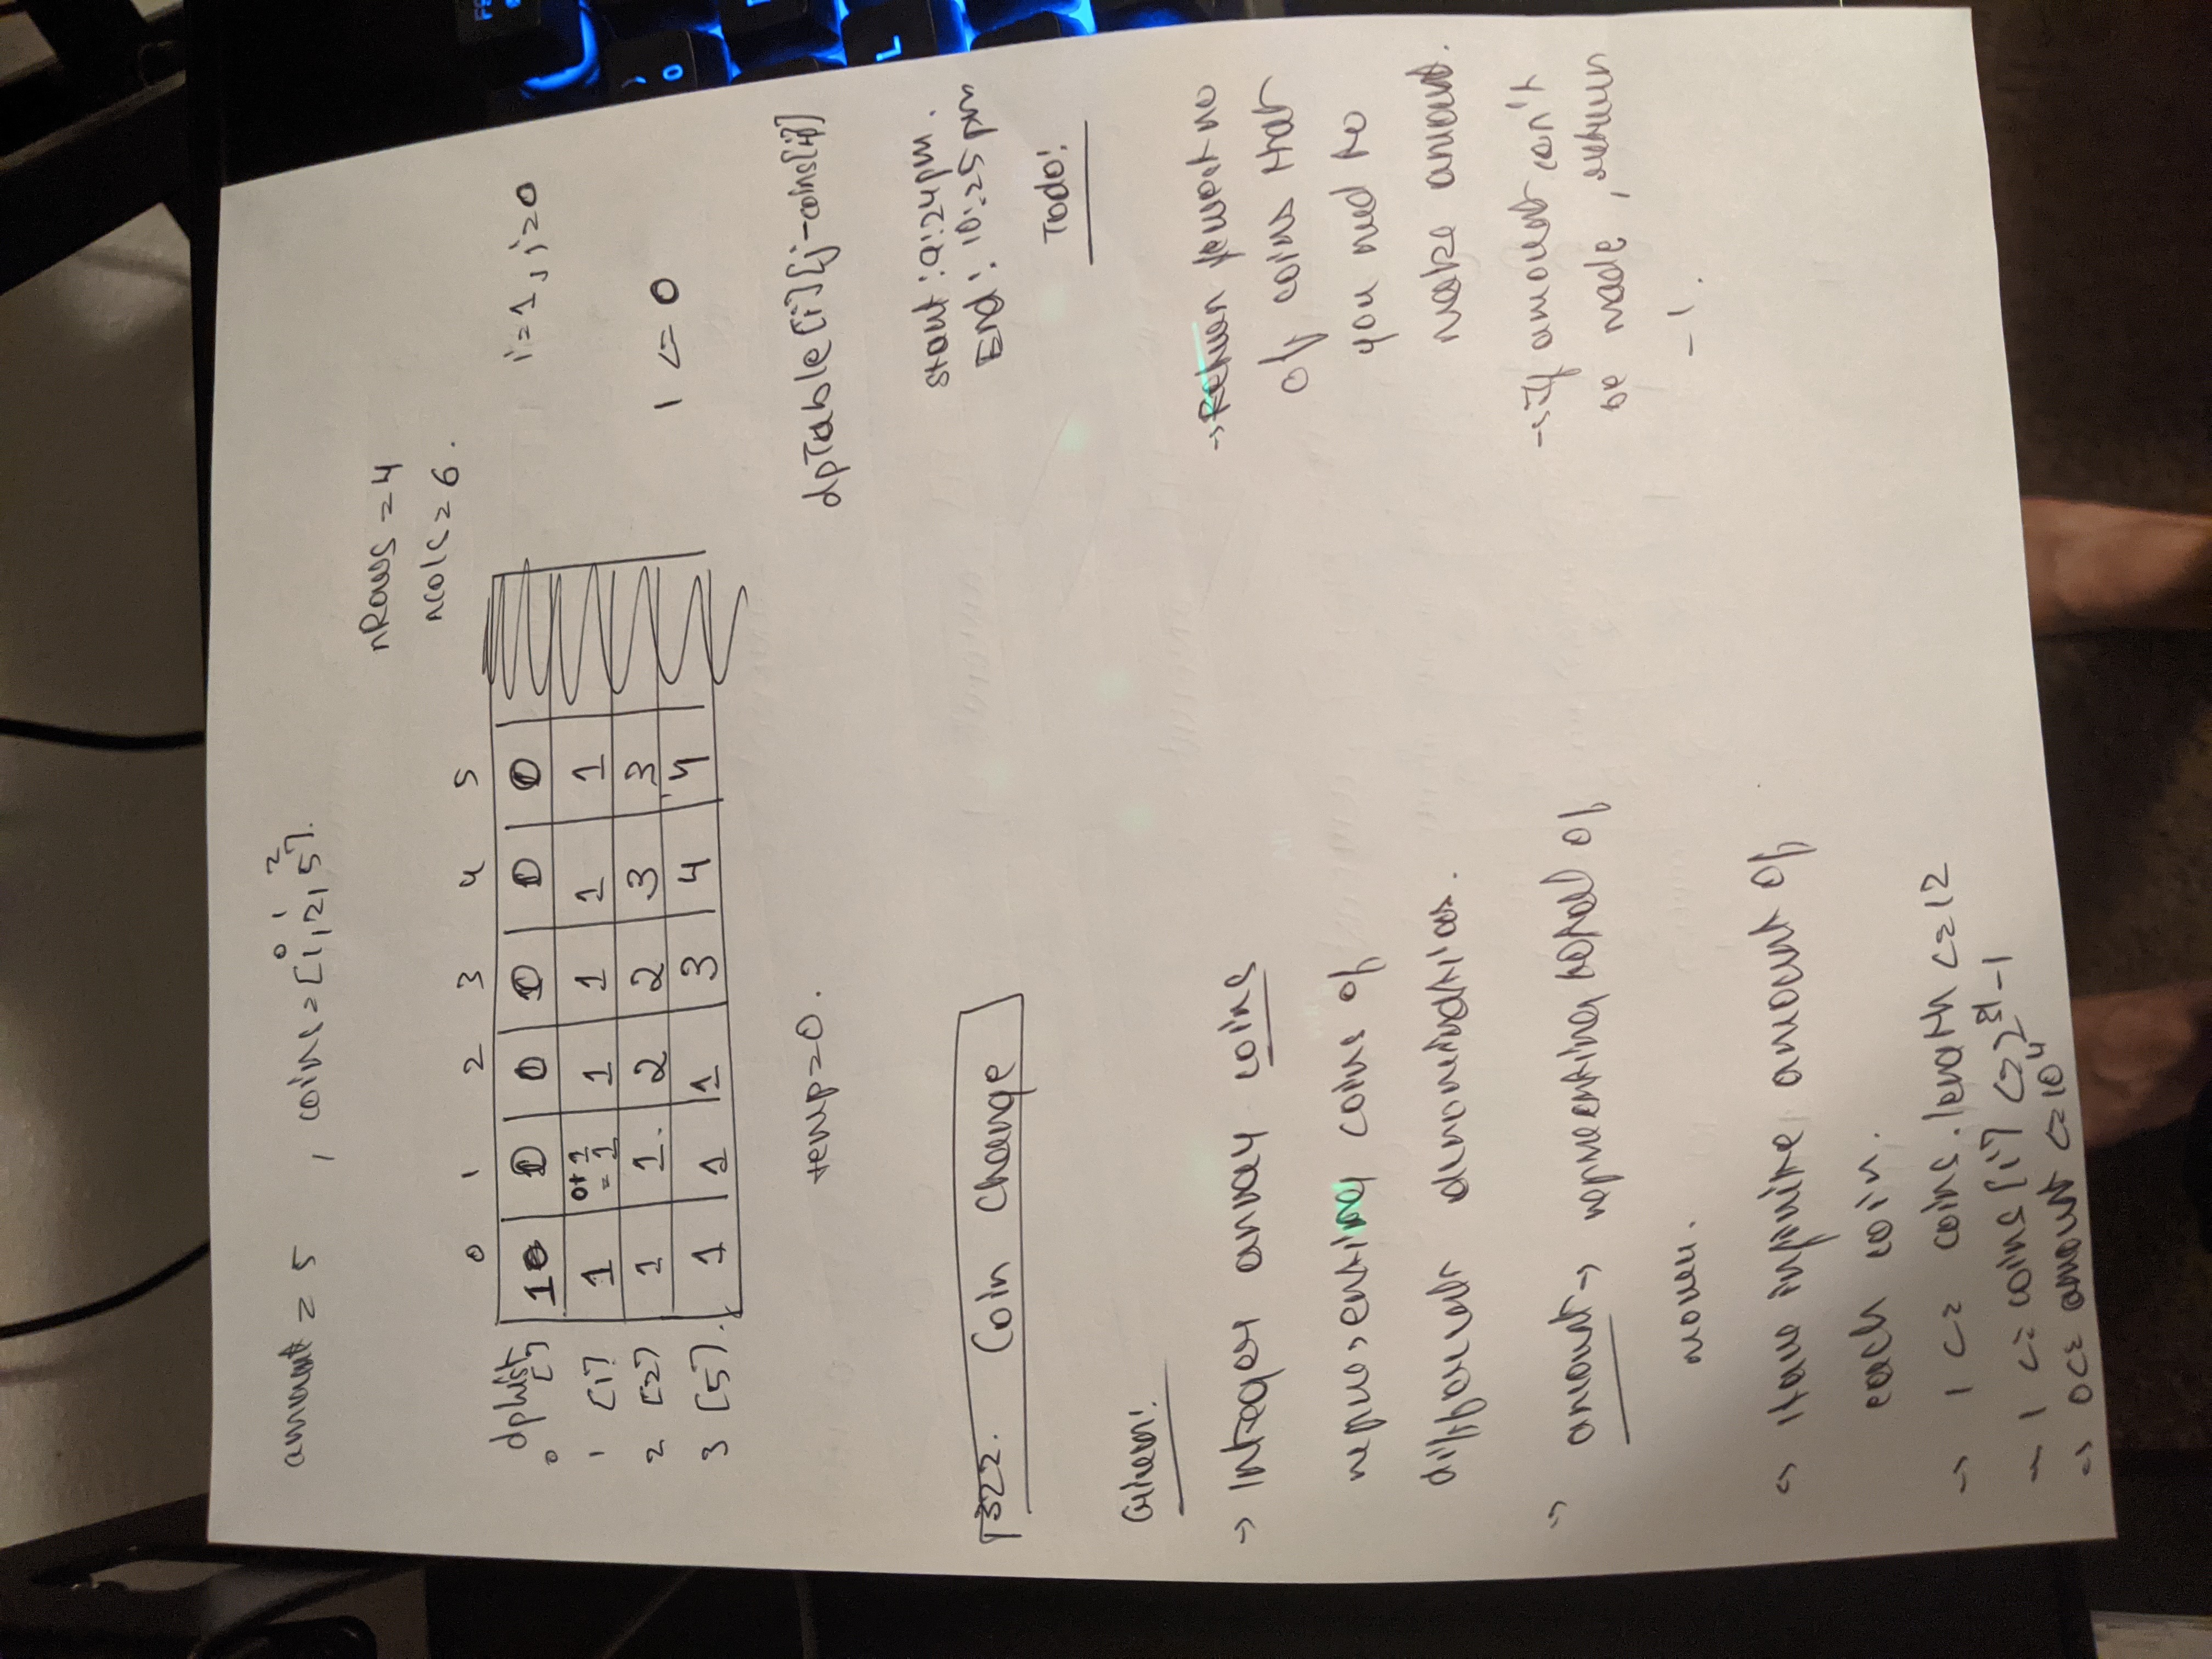 amount = 5 , coins = [1, 2, 5].
0 1 2
nRows = 4
ncols = 6.
0 1 2 3 4 5
dplist
0 [] 1 0 0 0 0 0
1 [1] 1 0+1 =1 1 1 1 1
2 [2] 1 1. 2 2 3 3
3 [5]. 1 1 1 3 4 4
i=1, j=0
1 <= 0
temp=0.
dpTable[i][j-coins[i]]
start: 9:24pm.
End: 10:25 pm
322. Coin Change
Todo:
Given:
→ Integer array coins
representing coins of
different denominations.
→ amount → representing total of
money.
→ Have infinite amount of
each coin.
→ 1 <= coins.length <= 12
→ 1 <= coins[i] <= 2^31 - 1
→ 0 <= amount <= 10^4
→ Return fewest no
of coins that
you need to
make amount.
→ If amount can't
be made, return
-1.
F
)
0
L